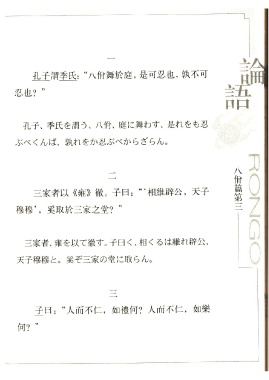 一
孔子謂季氏：“八佾舞於庭，是可忍也，孰不可
忍也？”
孔子、季氏を謂う、八佾、庭に舞わす、是れをも忍
ぶべくんば、孰れをか忍ぶべからざらん。
二
三家者以《雍》徹。子曰：“‘相維辟公，天子
穆穆’，奚取於三家之堂？”
三家者、雍を以て徹す。子曰く、相くるは維れ辟公、
天子穆穆と。奚ぞ三家の堂に取らん。
三
子曰：“人而不仁，如禮何？人而不仁，如樂
何？”
論語
八佾篇第三
RONGO